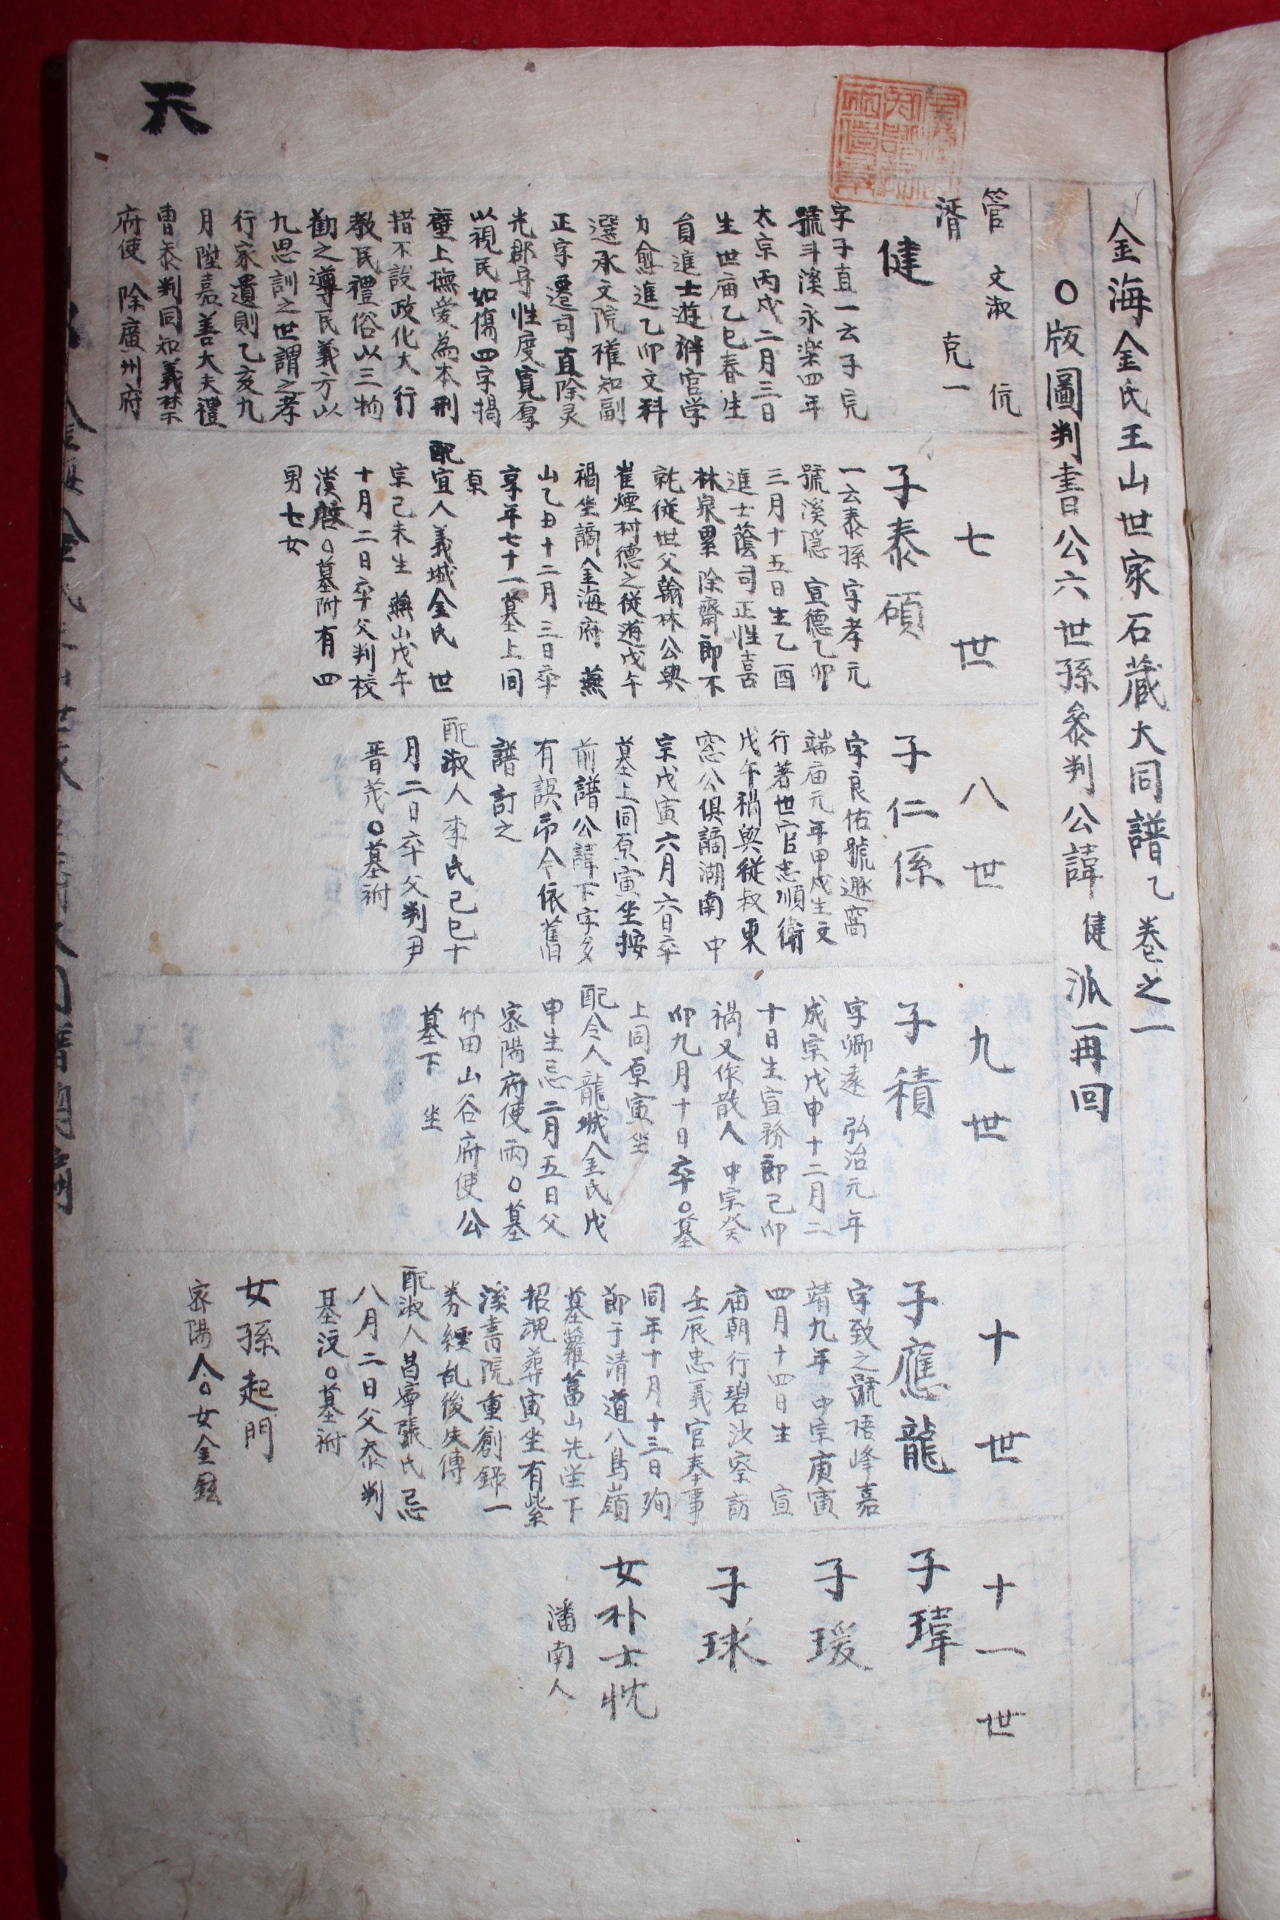 天
金海金氏王山世家石藏大同譜乙 卷之一
○版圖判書公六世孫參判公諱健派一再回
管 文淑 伉
湑 克一
健
字子直一云子完
號斗溪永樂四年
太宗丙戌二月三日
生 世庙乙巳春生
員進士遊泮宮学
力愈進乙卯文科
選承文院權知副
正字遷司直除灵
光郡守性度寬厚
以視民如傷四字揭
壁上撫愛為本刑
措不設政化大行
教民禮俗以三物
勸之導民義方以
九思訓之世謂之孝
行家遺則乙亥九
月陞嘉善大夫禮
曹參判同知義禁
府使 除廣州府
七世
子泰碩
一云泰孫字孝元
號溪隱 宣德乙卯
三月十五日生乙酉
進士蔭司正性嘉
林泉累除齋郎不
就從世父翰林公與
崔煙村德之從遊戊午
禍坐謫金海府 燕
山乙丑十二月三日卒
享年七十一墓上同
原
配宜人義城金氏 世
宗己未生 燕山戊午
十月二日卒父判校
漢啓○墓附有四
男七女
八世
子仁係
字良佑號遯窩
端庙元年甲戌生文
行著世官忠順衛
戊午禍與從叔東
窓公俱謫湖南 中
宗戊寅六月六日卒
墓上同原寅坐按
前譜公諱下字多
有誤吊今依舊
譜訂之
配淑人李氏己巳十
月二日卒父判尹
晋茂○墓祔
九世
子積
字卿遠 弘治元年
成宗戊申十二月二
十日生宣務郎己卯
禍又作散人 中宗癸
卯九月十日卒○墓
上同原寅坐
配令人龍城金氏戊
申生忌二月五日父
密陽府使丙○墓
竹田山谷府使公
墓下 坐
十世
子應龍
字致之號梧峰嘉
靖九年 中宗庚寅
四月十四日生 宣
庙朝行碧沙察訪
壬辰忠義官奉事
同年十月十三日殉
節于清道八鳥嶺
墓蘿葍山先塋下
招魂葬寅坐有紫
溪書院重創錄一
券經乱後失傳
配淑人昌寧張氏忌
八月二日父參判
基浚○墓祔
女孫起門
密陽人○女金鉉
十一世
子瑋
子瑗
子球
女朴士忱
潘南人